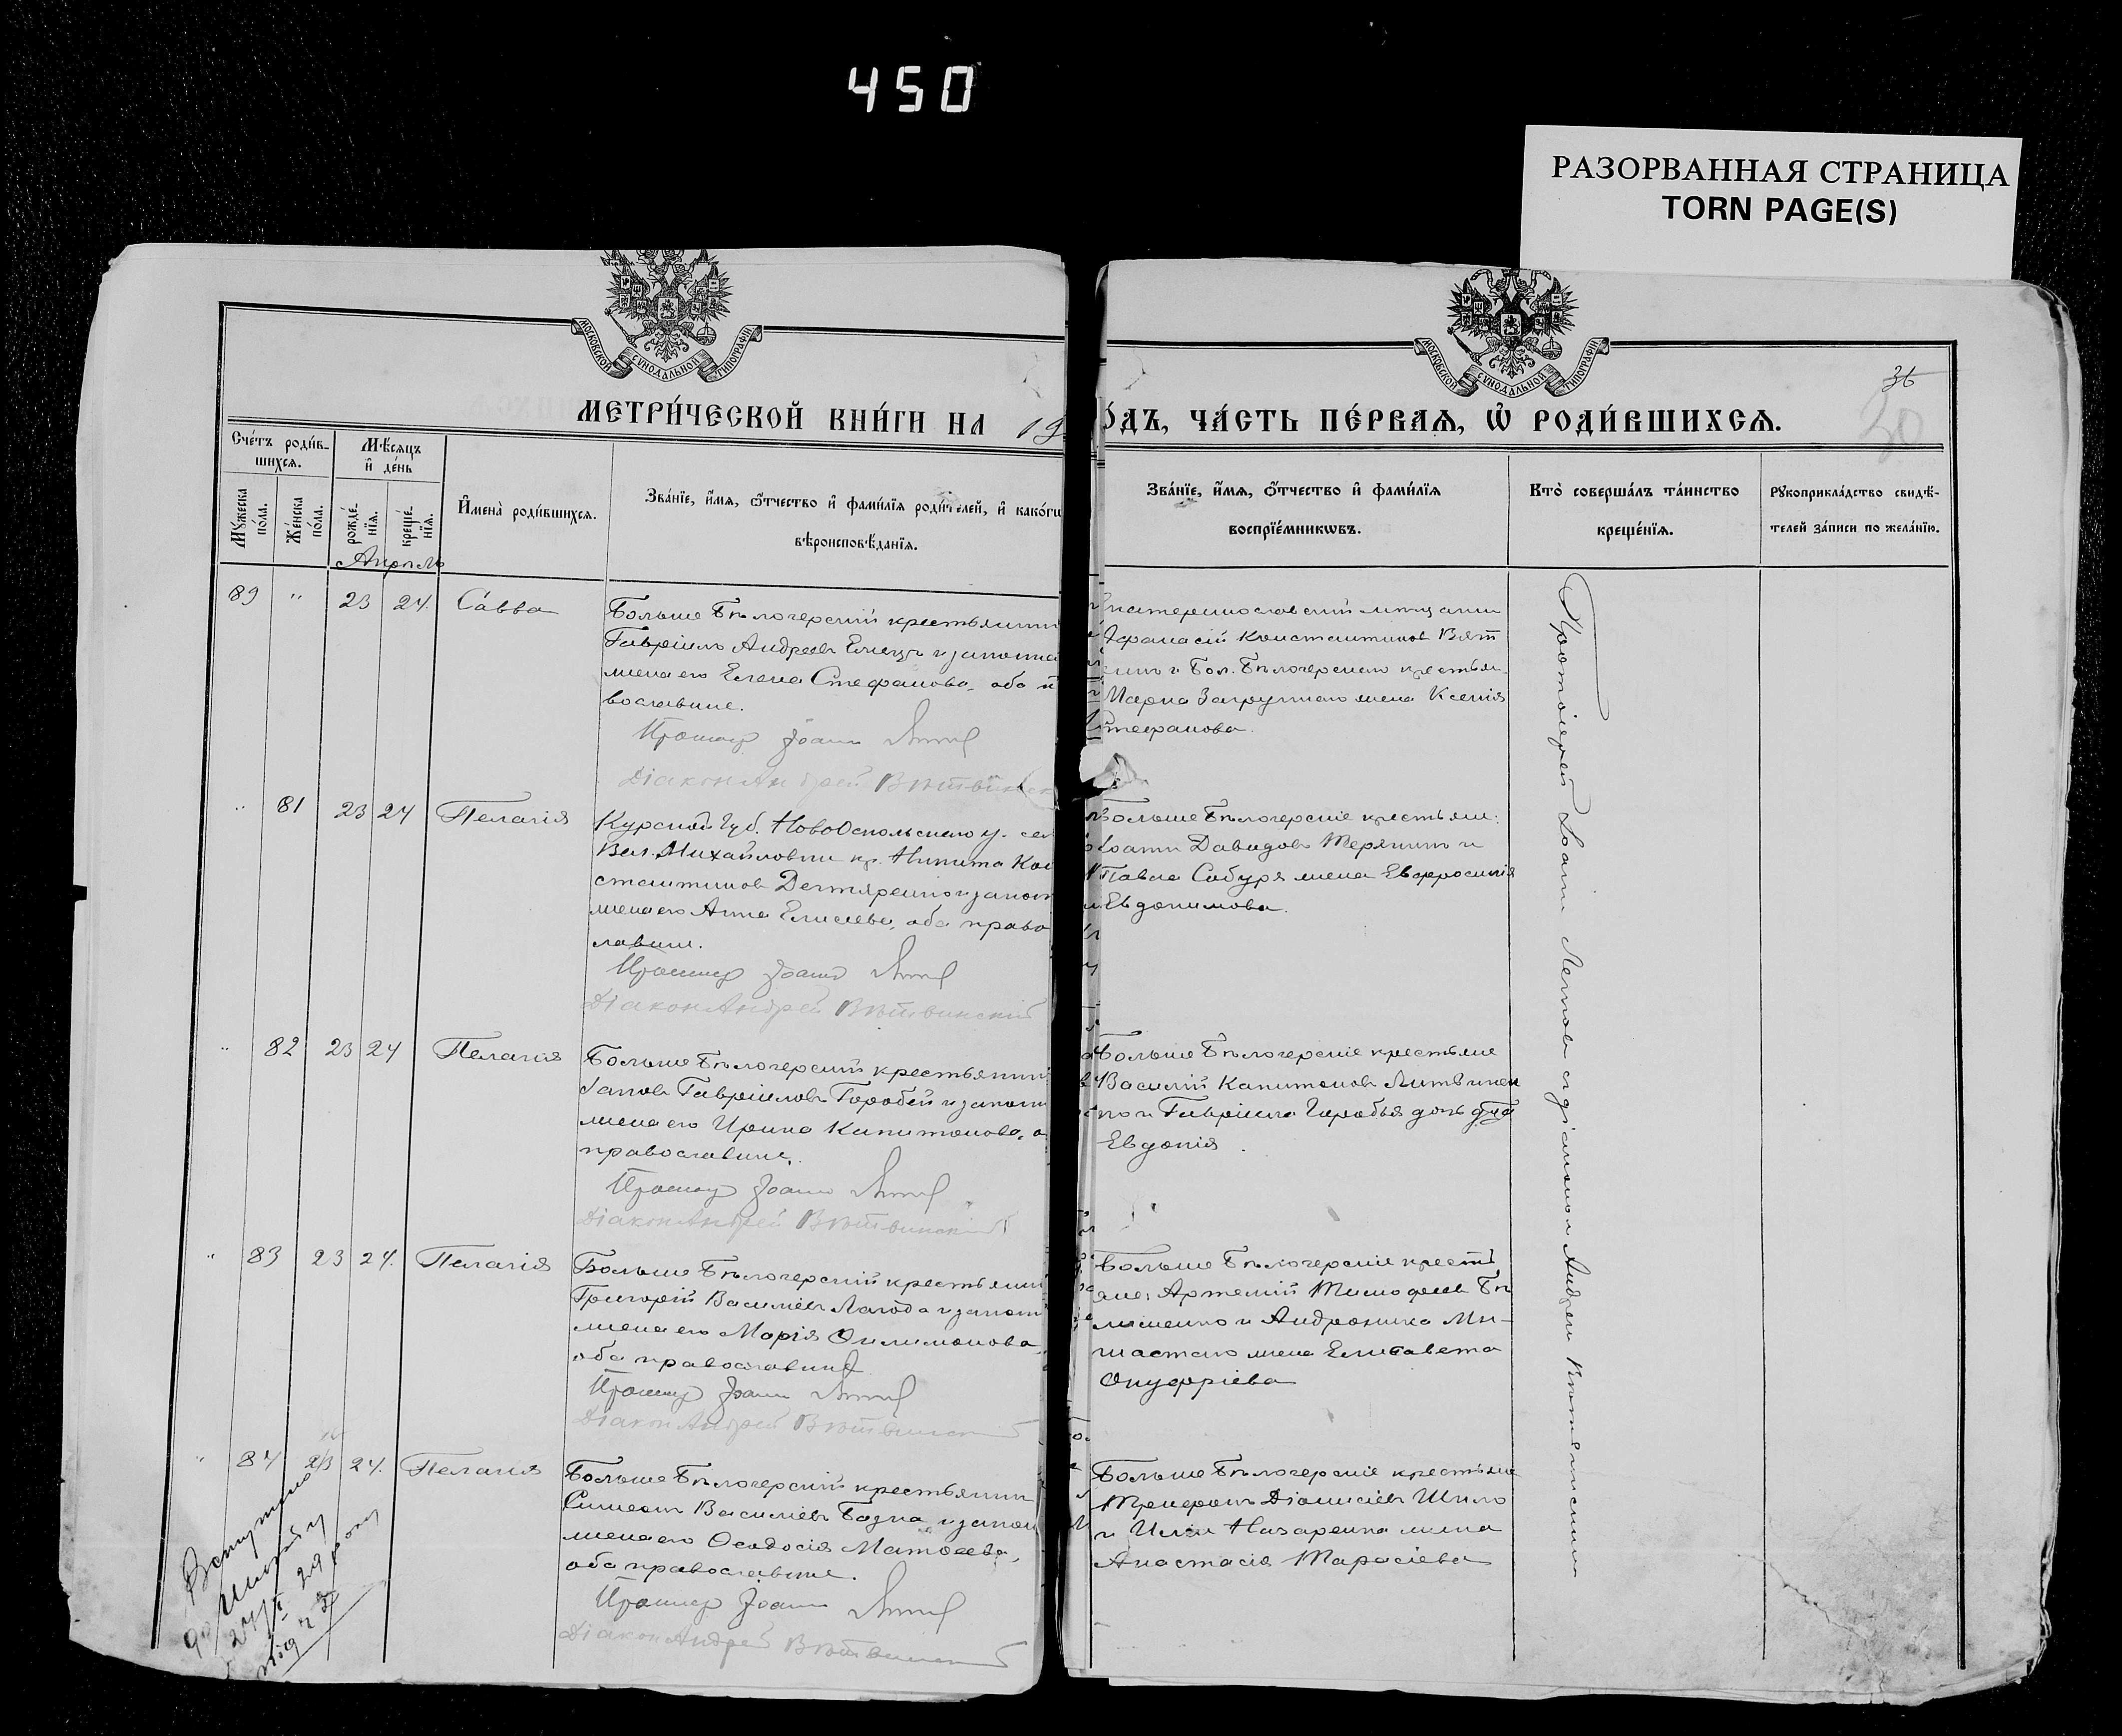 450
РАЗОРВАННАЯ СТРАНИЦА
TORN PAGE(S)
МОСКОВСКОЙ СѴНОДАЛЬНОЙ ТИПОГРАФІИ
МОСКОВСКОЙ СѴНОДАЛЬНОЙ ТИПОГРАФІИ
36
30
МЕТРИ́ЧЕСКОЙ КНИ́ГИ НА 19
О́ДЪ, ЧА́СТЬ ПЕ́РВАѦ, Ѡ҆ РОДИ́ВШИХСѦ.
Сче́тъ роди́в-
шихсѧ.
Мѣ́сѧцъ
и҆ де́нь
Мꙋ́жеска
по́ла.
Же́нска
по́ла.
рожде́-
нїѧ.
креще́-
нїѧ.
И҆мена̀ роди́вшихсѧ.
Зва́нїе, и҆́мѧ, ѻ҆́тчество и҆ фами́лїѧ роди́телей, и҆ како́гѡ
вѣроисповѣ́данїѧ.
Зва́нїе, и҆́мѧ, ѻ҆́тчество и҆ фами́лїѧ
воспрїе́мникѡвъ.
Кто̀ соверша́лъ та́инство
креще́нїѧ.
Рꙋкоприкла́дство свидѣ́-
телей за́писи по жела́нїю.
Апрѣль
89 " 23 24. Са́вва
Больше Бѣлозерскій крестьянин
Гавріилъ Андреевъ Елецъ и законна
жена его Елена Стефанова, оба п
вославные.
Іоанн
Діакон Андрей Вѣтвинск
Екатеринославскій мѣщанин
Афанасій Константинов Вят
и Бол. Бѣлозерскаго крестьян
Марка Загрутнаго жена Ксенія
Стефанова.
" 81 23 24 Пелагія
Курской Губ. НовоОскольскаго у. сел
Вел. Михайловки кр. Никита Кон
стантинов Дегтяренко и закон
жена его Анна Елисеева, оба право
славные.
Іоанн
Діакон Андрей Вѣтвинскій
Больше Бѣлозерскіе крестьян.
Іоанн Давидов Терянин и
Павла Сабура жена Евфросинія
Евдокимова.
" 82 23 24 Пелагія
Больше Бѣлозерскій крестьянин
Іаков Гавріилов Горобей и законн
жена его Ирина Капитонова, о
православные.
Іоанн
Діакон Андрей Вѣтвинскій
Больше Бѣлозерскіе крестьяне
Василій Капитонов Литвинен
ко и Гавріила Горобья дочь
Евдокія.
" 83 23 24. Пелагія
Больше Бѣлозерскій крестьянин
Григорій Василіев Лагода и законн
жена его Марія Филимонова,
оба православные
Іоанн
Діакон Андрей Вѣтвинскій
Больше Бѣлозерскіе кресть
яне: Артемій Тимофеев Бѣ
лименко и Андроника Мн-
шастаго жена Елисавета
Онуфріева
" 84 23 24. Пелагія
Больше Бѣлозерскій крестьянин
Симеон Василіев Бадна и закон
жена его Феодосія Матѳеева,
оба православные.
Іоанн
Діакон Андрей Вѣтвинский
Больше Бѣлозерскіе крестьяне
Трифон Діонисіев Шило
и Иліи Назаренка жена
Анастасія Тарасіева
Протоіерей Іоанн Летов с діаконом Андреем Вѣтвинским